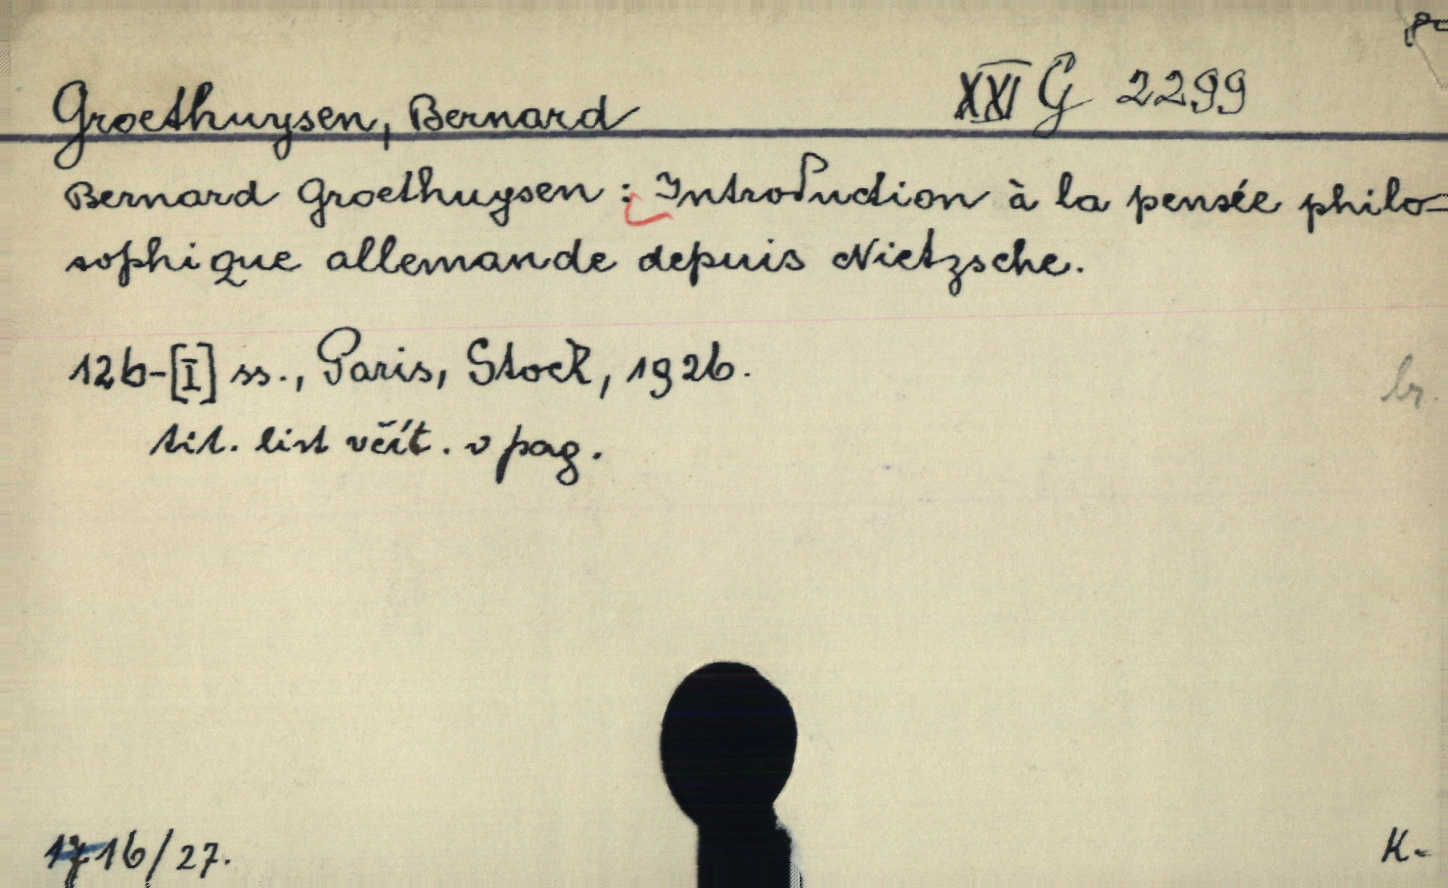 8°
Groethuysen, Bernard XXI G 2299
Bernard Groethuysen : Introduction à la pensée philo-
sophique allemande depuis Nietzsche.
126-[I] ss., Paris, Stock, 1926.
br.
tit. list včít. v pag.
1716/27.
K.